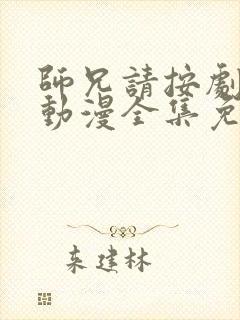 師兄請按劇
動漫全集免
来建林